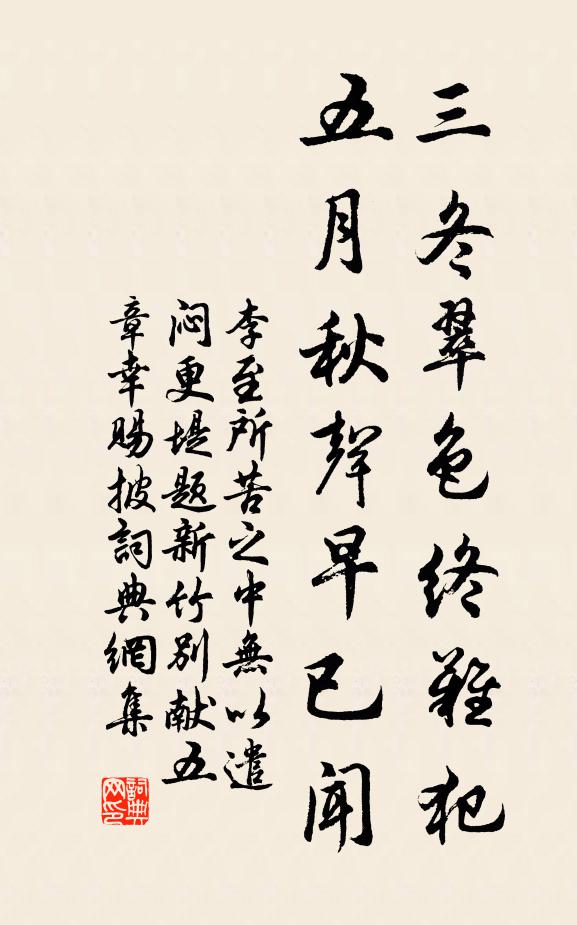 三冬翠色终难犯
五月秋聲早已闻
李至所苦之中無以遣
闷更堤题新竹别献五
章幸赐披詞典網集
詞典网印